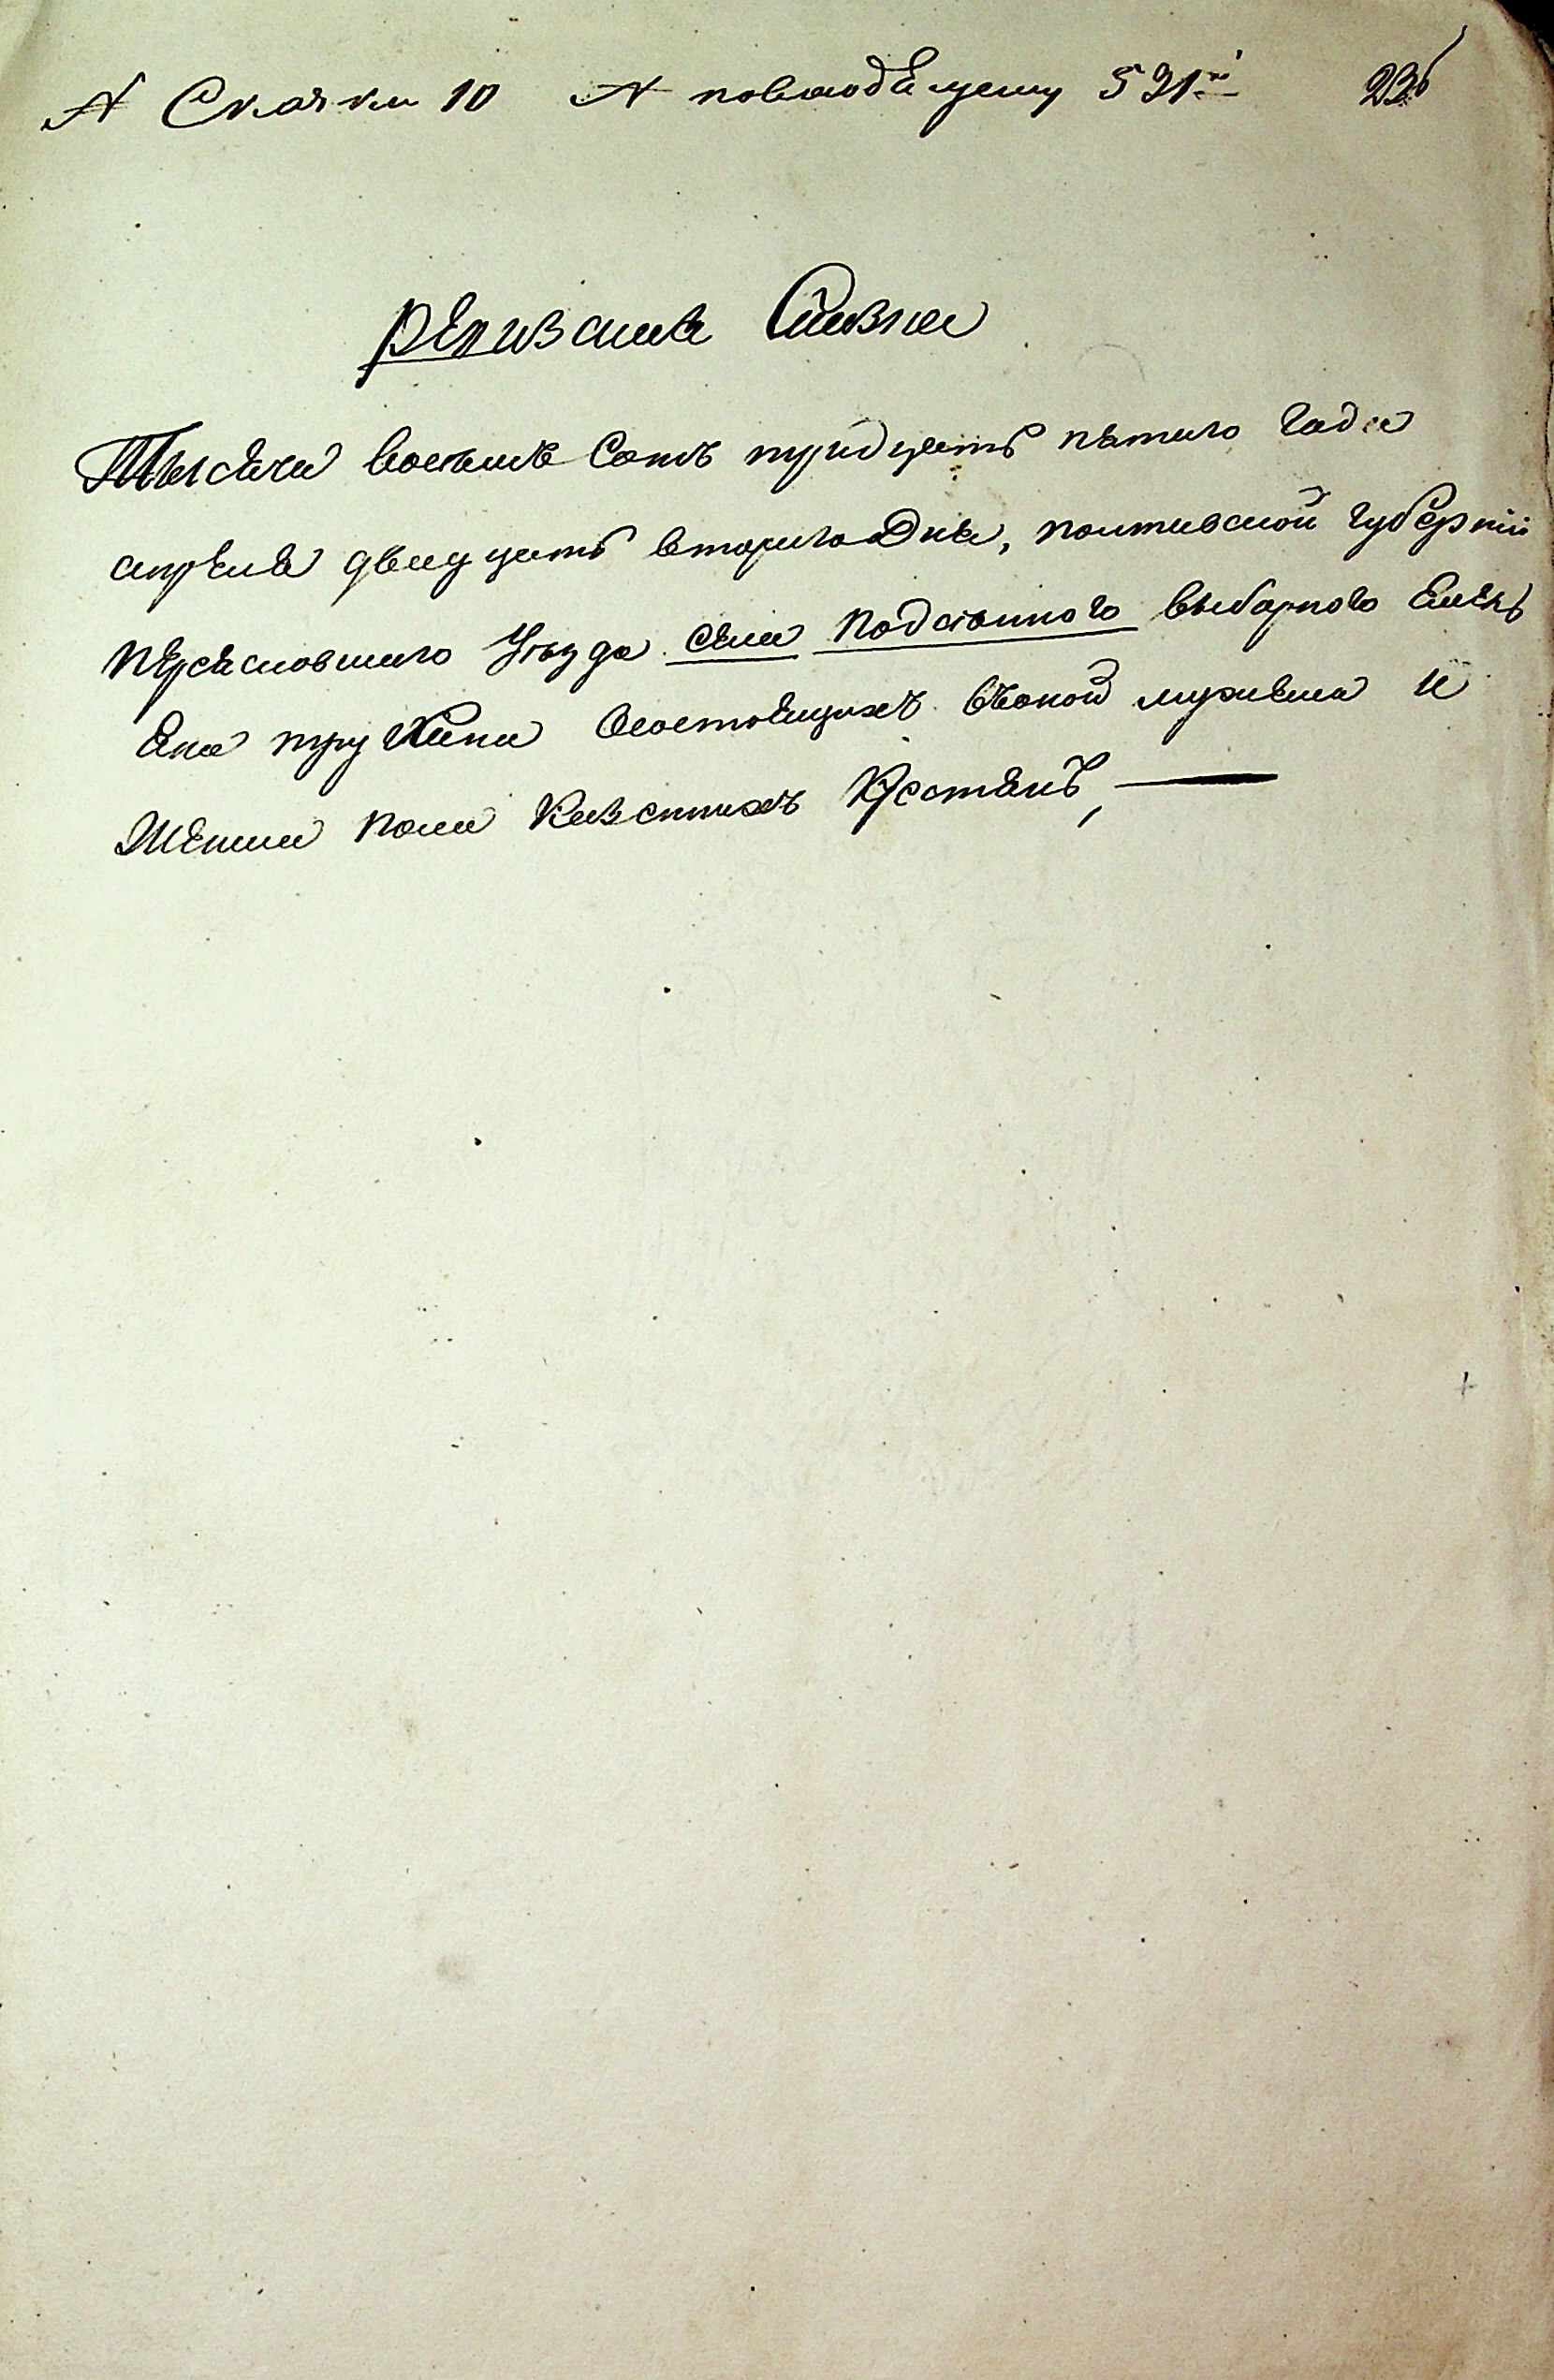 № Скаски 10 № повсюдящему 531й 236
Ревизская Скаска
Тысяча восемь Сотъ тридцять пятого Года
апреля двадцять второго Дня, полтавской губернии
переясловшаго Уезда села Подсенного выборного Емель
яна Состоящихъ въоной мужеска и
Женска пола Казенныхъ Крестянъ,